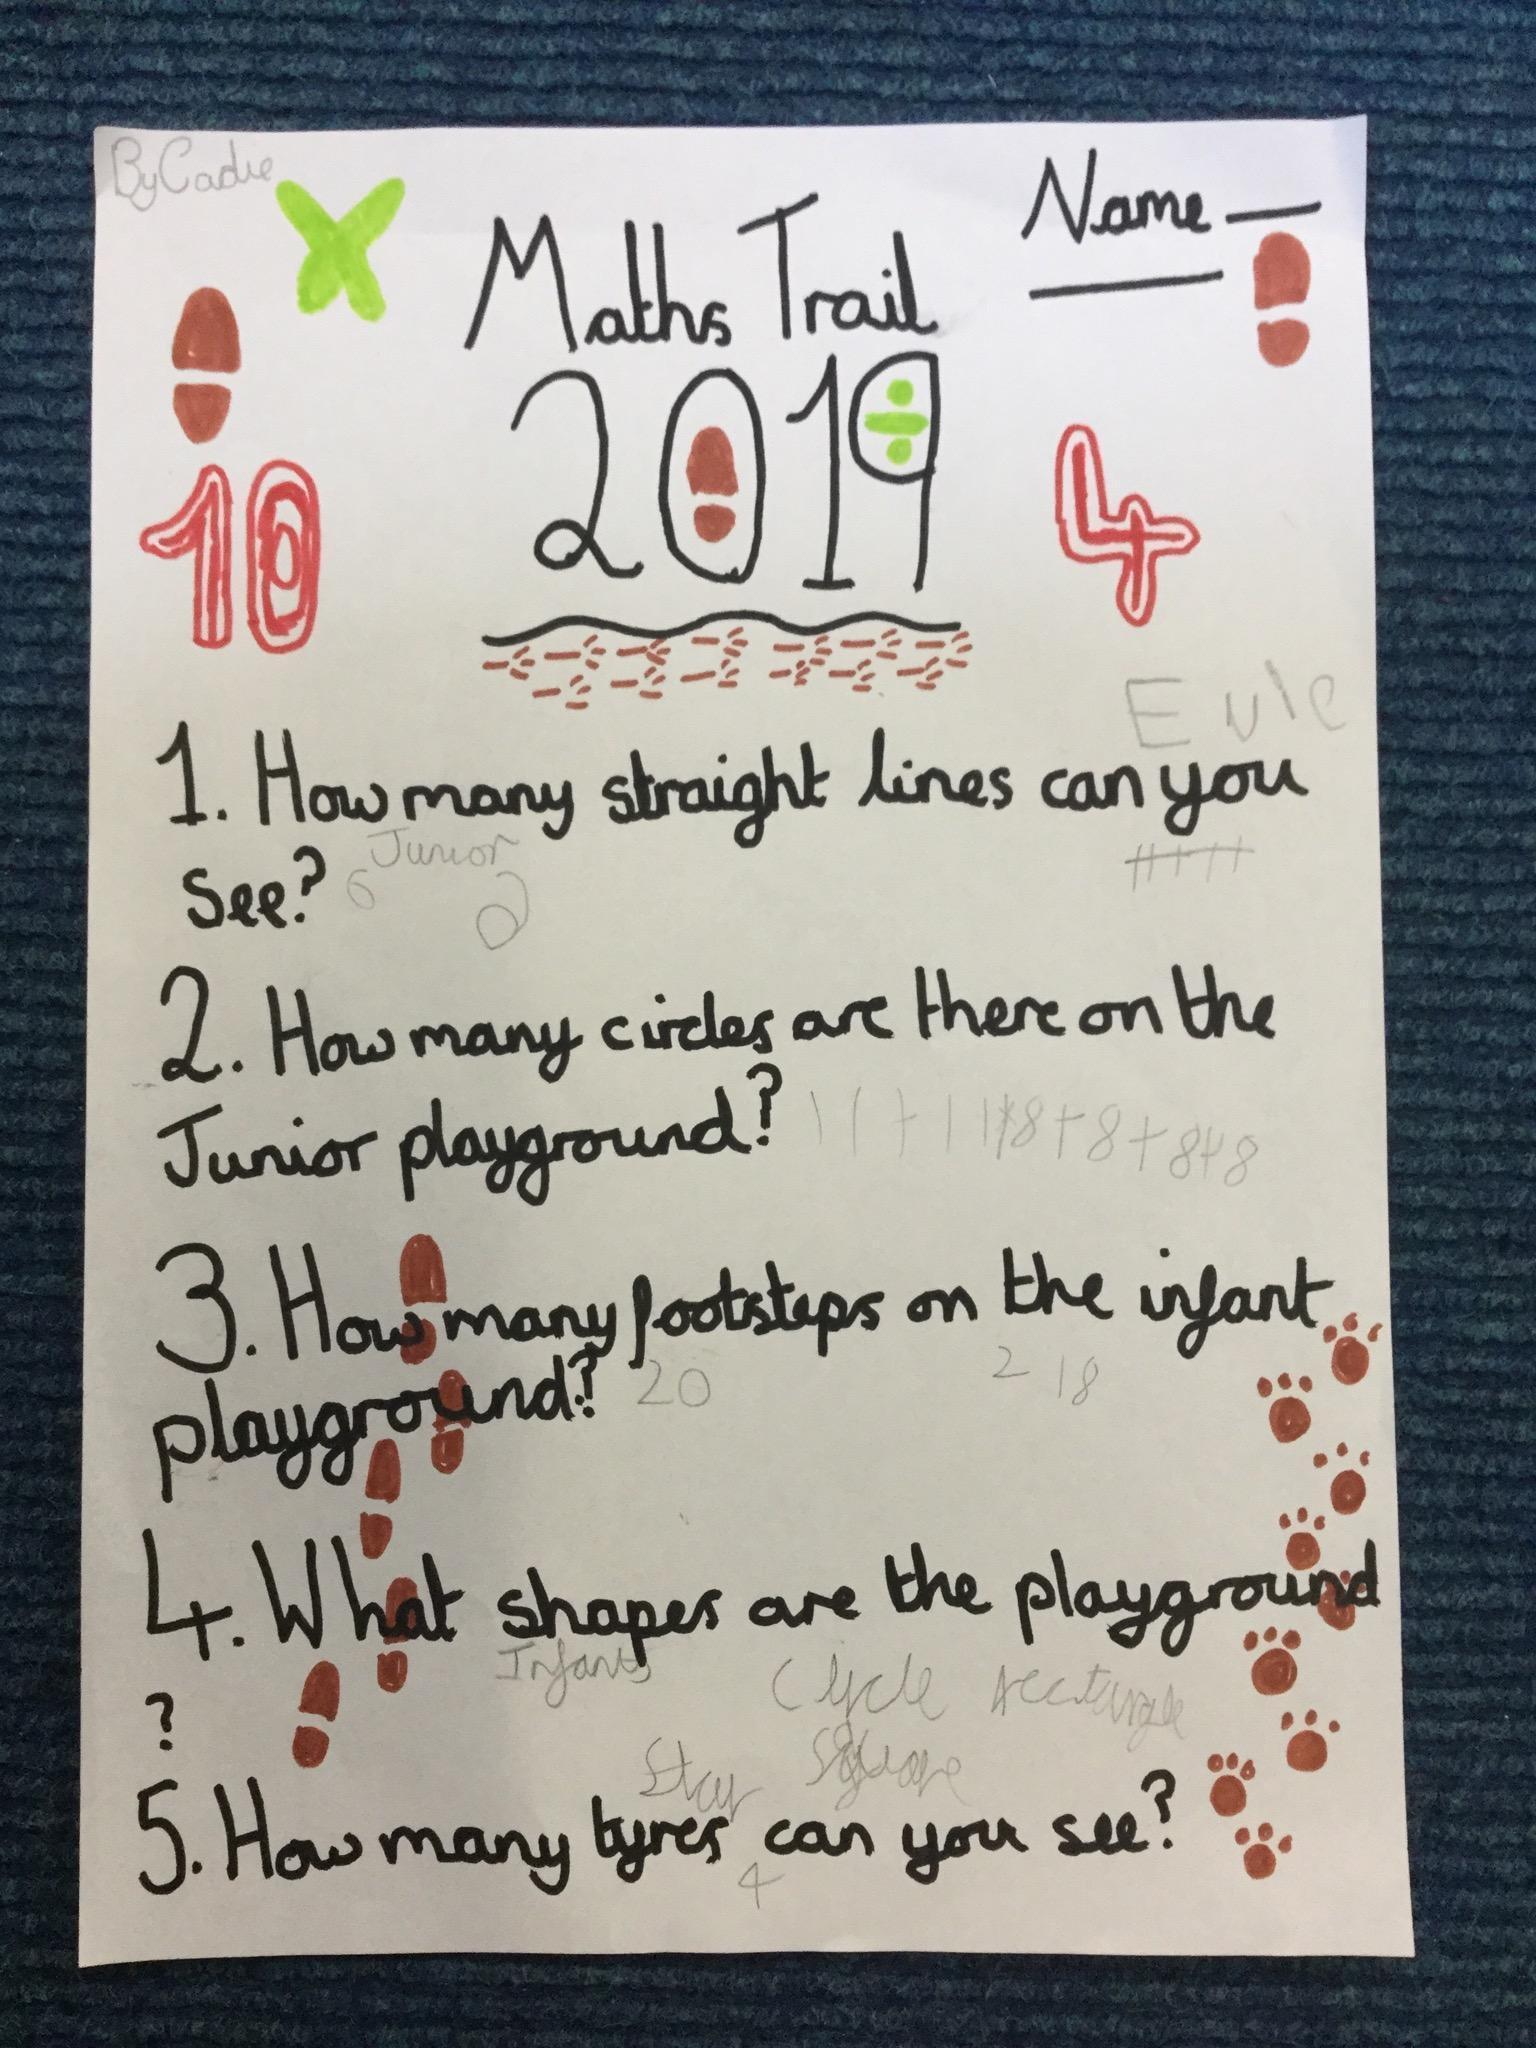 By Cadie
Name
Maths Trail
2019
10
4
Evie
1. How many straight lines can you
See?
6
Junior
2. How many circles are there on the
Junior playground?
8+8+8+8
3. How many footsteps on the infant
playground?
20
2 18
4. What shapes are the playground
?
Infants
Clycle rectangle
Star Square
5. How many tyres can you see?
4